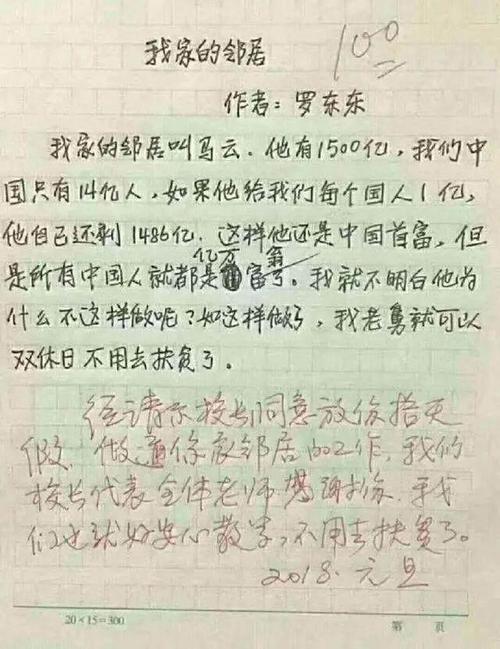 我家的邻居
100
作者：罗东东
我家的邻居叫马云．他有1500亿，我们中
国只有14亿人，如果他给我们每个国人1亿，
他自己还剩1486亿．这样他还是中国首富，但
是所有中国人就都是亿万富翁了。我就不明白他为
什么不这样做呢？如这样做了，我老舅就可以
双休日不用去扶贫了。
经请示校长同意放你搭天
假．做通你家邻居的工作．我们
校长代表全体老师感谢你．我
们也就好安心教学，不用去扶贫了。
2018．元旦
20×15=300
第 页